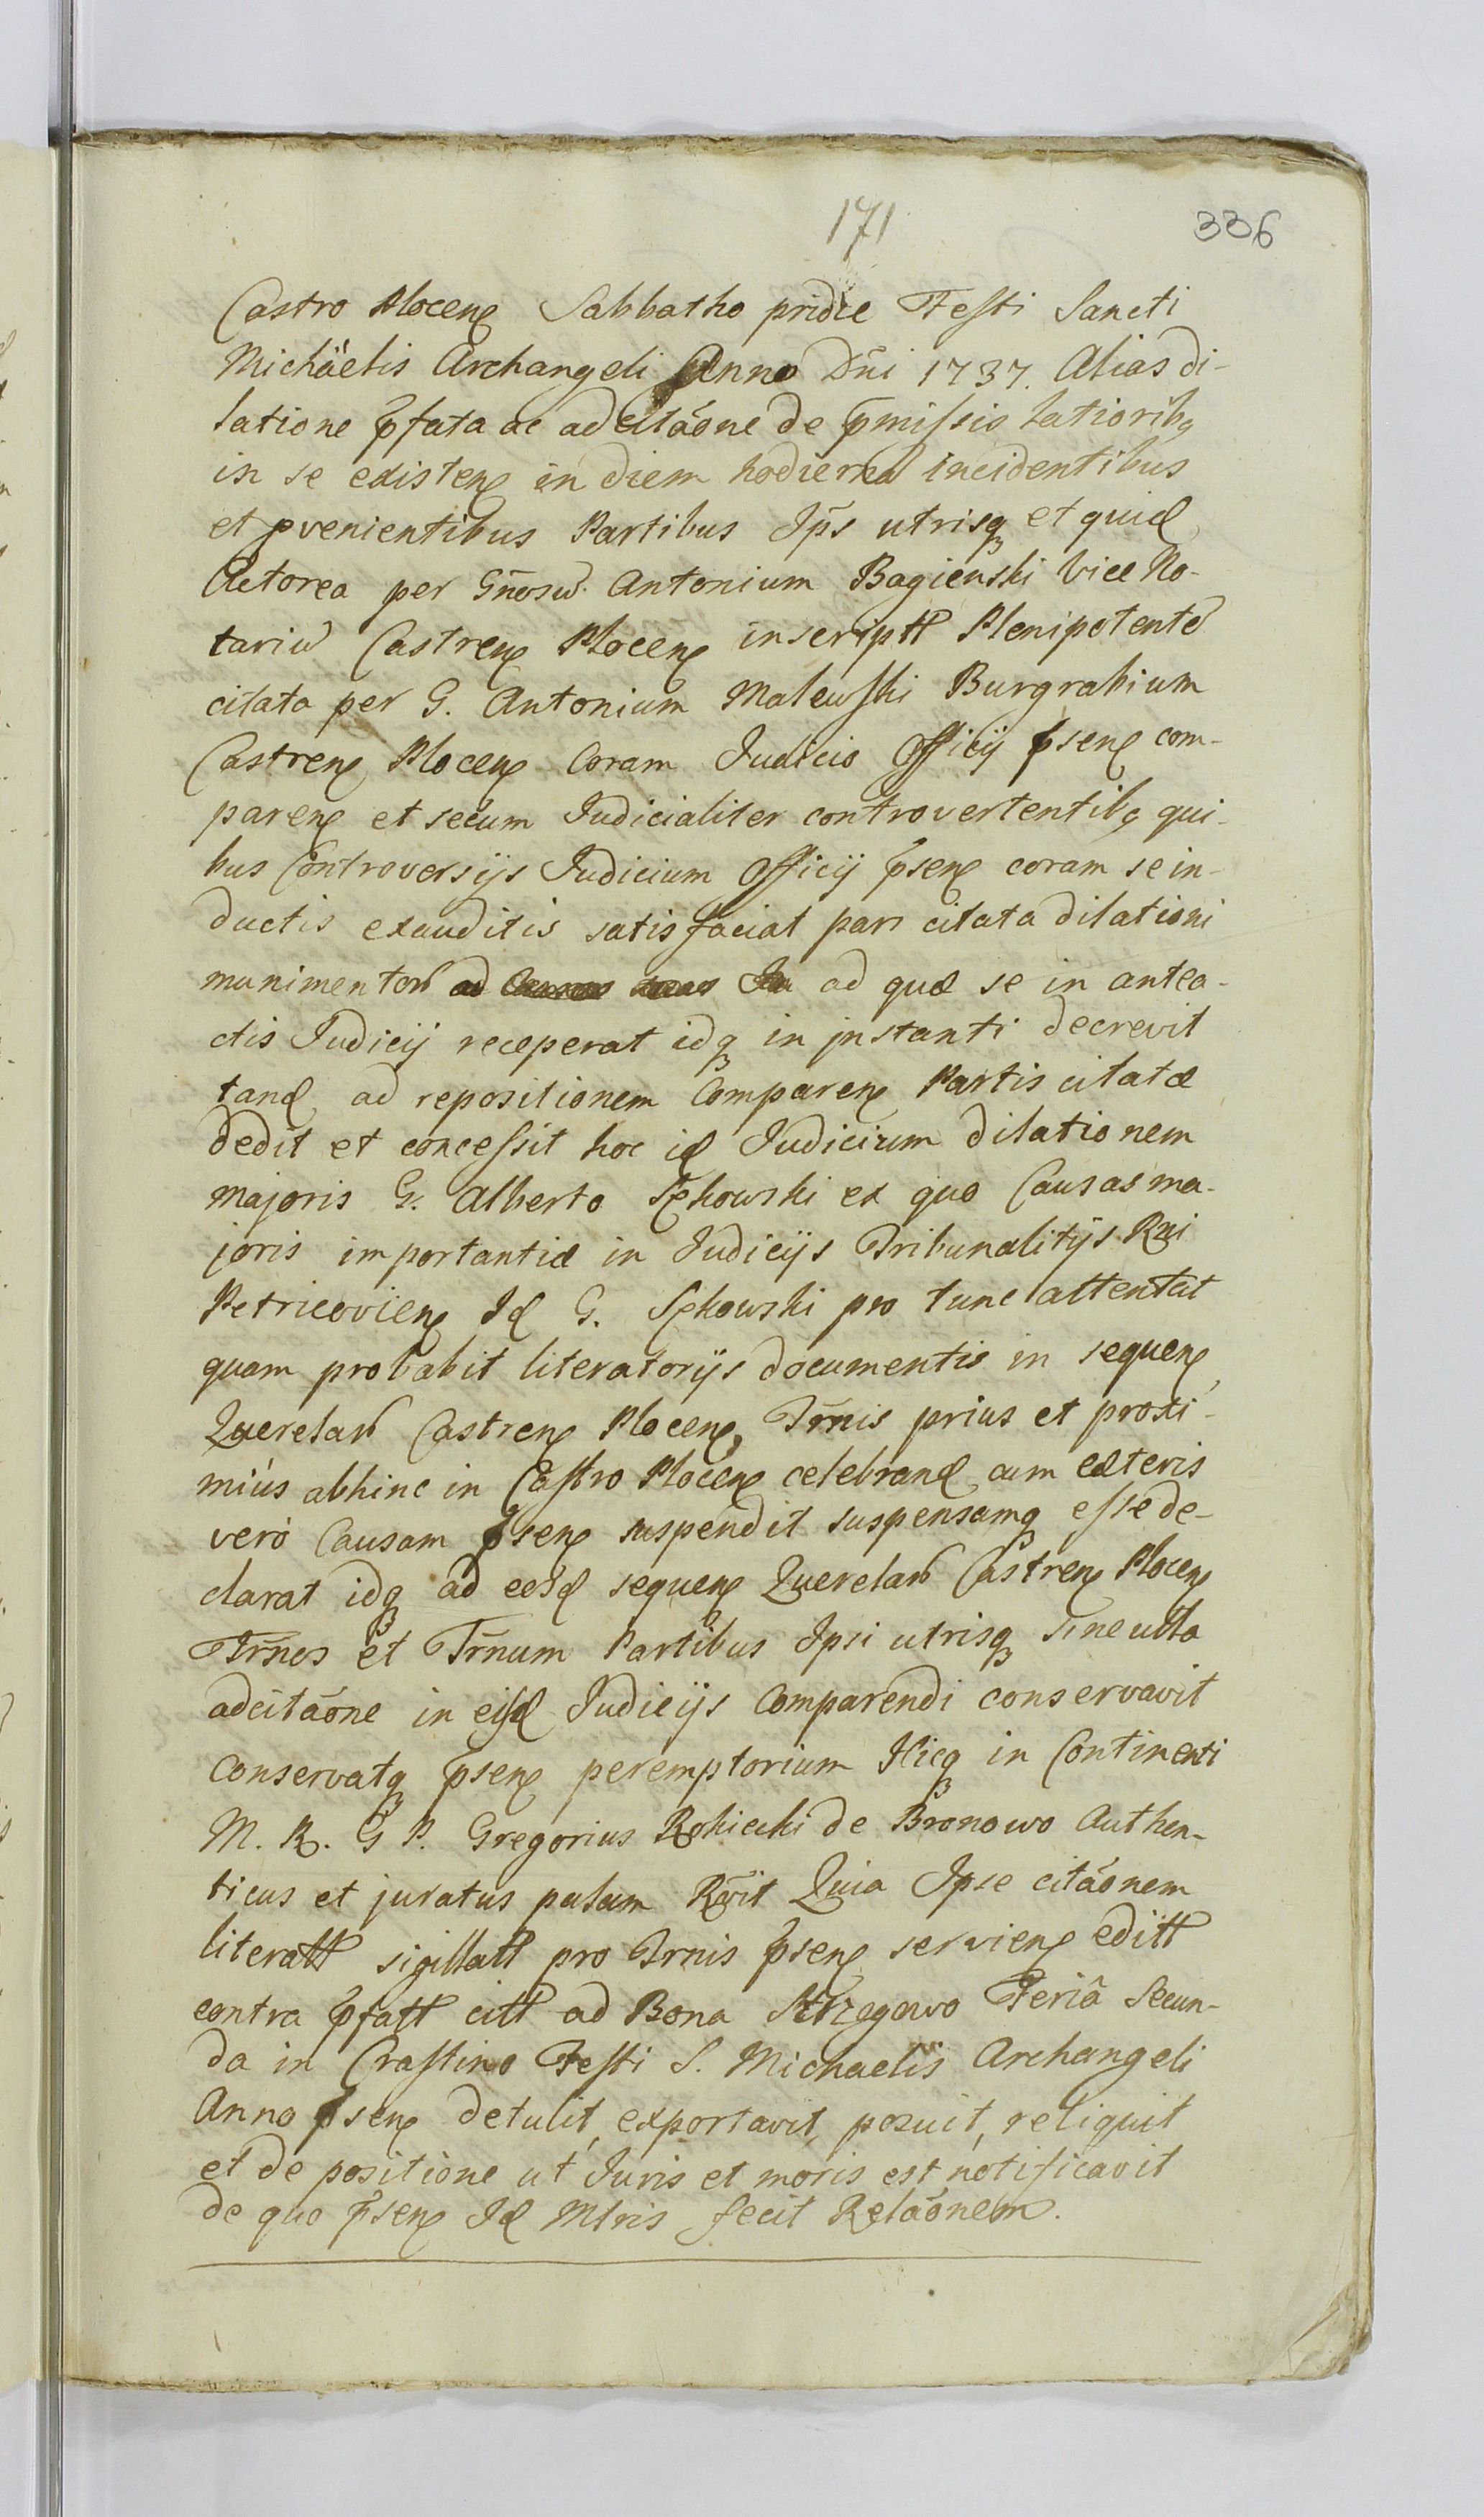 171
336
Castro Plocenꝭ Sabbatho pridie Festi Sancti
Michäelis Archangeli Anno Dn̄i 1737. Alias di-
latione p̄fata ac adcitãone de p̄missis latioribꝫ
in se existenꝭ in diem hodierna incidentibus
et pvenientibus Partibus Ip̄s utrisqꝫ et quid
Actorea per Gn̄osũ. Antonium Bagienski Vice No-
tariũ Castrenꝭ Plocenꝭ inscriptt Plenipotente
citata per G. Antonium Malewski Burgrabium
Castrenꝭ Plocenꝭ Coram Judicio Officij p̄senꝭ com-
parenꝭ et secum Judicialiter controvertentibꝫ qui-
bus Controversijs Judicium Officij p̄senꝭ coram se in-
ductis exauditis satisfaciat pars citata dilationi
munimentoꝝ ad ad quæ se in antea-
ctis Judicij receperat idqꝫ in instanti decrevit
tand ad repositionem Comparenꝭ Partis citatæ
dedit et concessit hoc id Judicium dilationem
majoris G. Alberto Sękowski ex quo Causas ma-
joris importantiæ in Judicijs Tribunalitijs Rni
Petricovienꝭ Id G. Sękowski pro tunc attentat
quam probabit literatorijs documentis in sequenꝭ
Querelaꝝ Castrenꝭ Plocenꝭ, Tr̄nis prius et proxi-
miùs abhinc in Castro Plocenꝭ celebrand cum cæteris
verò Causam p̄senꝭ suspendit suspensamqꝫ esse de-
clarat idqꝫ ad eosd sequenꝭ Querelaꝝ Castrenꝭ Plocenꝭ
Tr̄nos et Tr̄num Partibus Ipsi utrisqꝫ sine ulla
adcitãone in eisd Judicijs Comparendi conservavit
Conservatqꝫ p̄senꝭ peremptorium Hicqꝫ in Continenti
M. R. G P. Gregorius Rokicki de Bronowo Authen-
ticus et juratus palam Rc̄vit Quia Ipse citãonem
literatt sigillatt pro Tr̄nis p̄senꝭ servienꝭ editt
contra p̄fatt citt ad Bona Strzegowo Feriâ Secun-
da in Crastino Festi S. Michaelis Archangeli
Anno p̄senꝭ detulit, exportavit, posuit, reliquit
et de positione ut Juris et moris est notificavit
de quo p̄senꝭ Id Mtris fecit Relãonem.